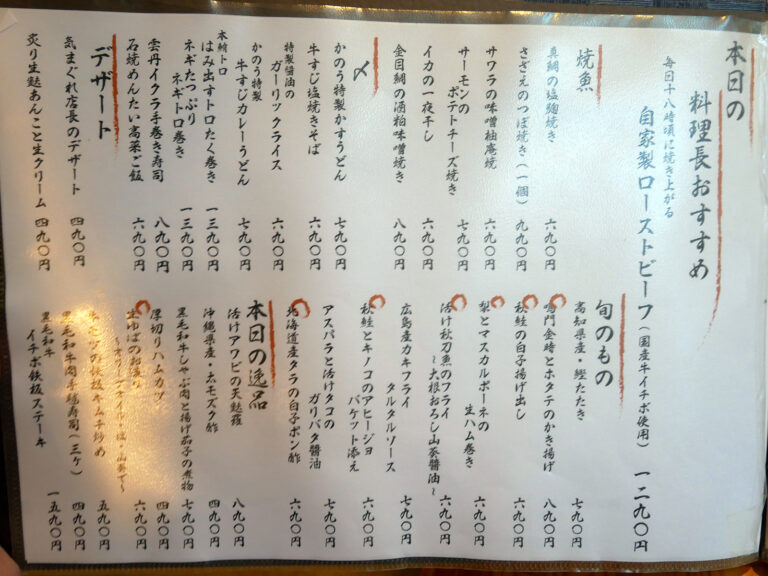 本日の
料理長おすすめ
毎日十八時頃に焼き上がる
自家製ローストビーフ（国産牛イチボ使用） 一二九〇円
焼魚
真鯛の塩麹焼き 六九〇円
さざえのつぼ焼き（一個） 九九〇円
サワラの味噌柚庵焼 六九〇円
サーモンの
ポテトチーズ焼き 七九〇円
イカの一夜干し 六九〇円
金目鯛の酒粕味噌焼き 八九〇円
〆
かのう特製かすうどん 七九〇円
牛すじ塩焼きそば 六九〇円
特製醤油の
ガーリックライス 六九〇円
かのう特製
牛すじカレーうどん 七九〇円
本鮪トロ
はみ出すトロたく巻き 一三九〇円
ネギたっぷり
ネギトロ巻き 一三九〇円
雲丹イクラ手巻き寿司 八九〇円
石焼めんたい高菜ご飯 六九〇円
デザート
気まぐれ店長のデザート 四九〇円
炙り生麩あんこと生クリーム 四九〇円
旬のもの
高知県産・鰹たたき 七九〇円
鳴門金時とホタテのかき揚げ 八九〇円
秋鮭の白子揚げ出し 六九〇円
梨とマスカルポーネの
生ハム巻き 六九〇円
活け秋刀魚のフライ
～大根おろし山葵醤油～ 六九〇円
広島産カキフライ
タルタルソース 七九〇円
秋鮭とキノコのアヒージョ
バケット添え 六九〇円
アスパラと活けタコの
ガリバタ醤油 七九〇円
北海道産タラの白子ポン酢 六九〇円
本日の逸品
活けアワビの天麩羅 八九〇円
沖縄県産・太モズク酢 四九〇円
黒毛和牛しゃぶ肉と揚げ茄子の煮物 七九〇円
厚切りハムカツ 四九〇円
生ゆばのお造り
～オリーブオイル・塩・山葵で～ 六九〇円
の鉄板キムチ炒め 五九〇円
黒毛和牛肉手毬寿司（三ケ） 四九〇円
黒毛和牛
イチボ鉄板ステーキ 一五九〇円